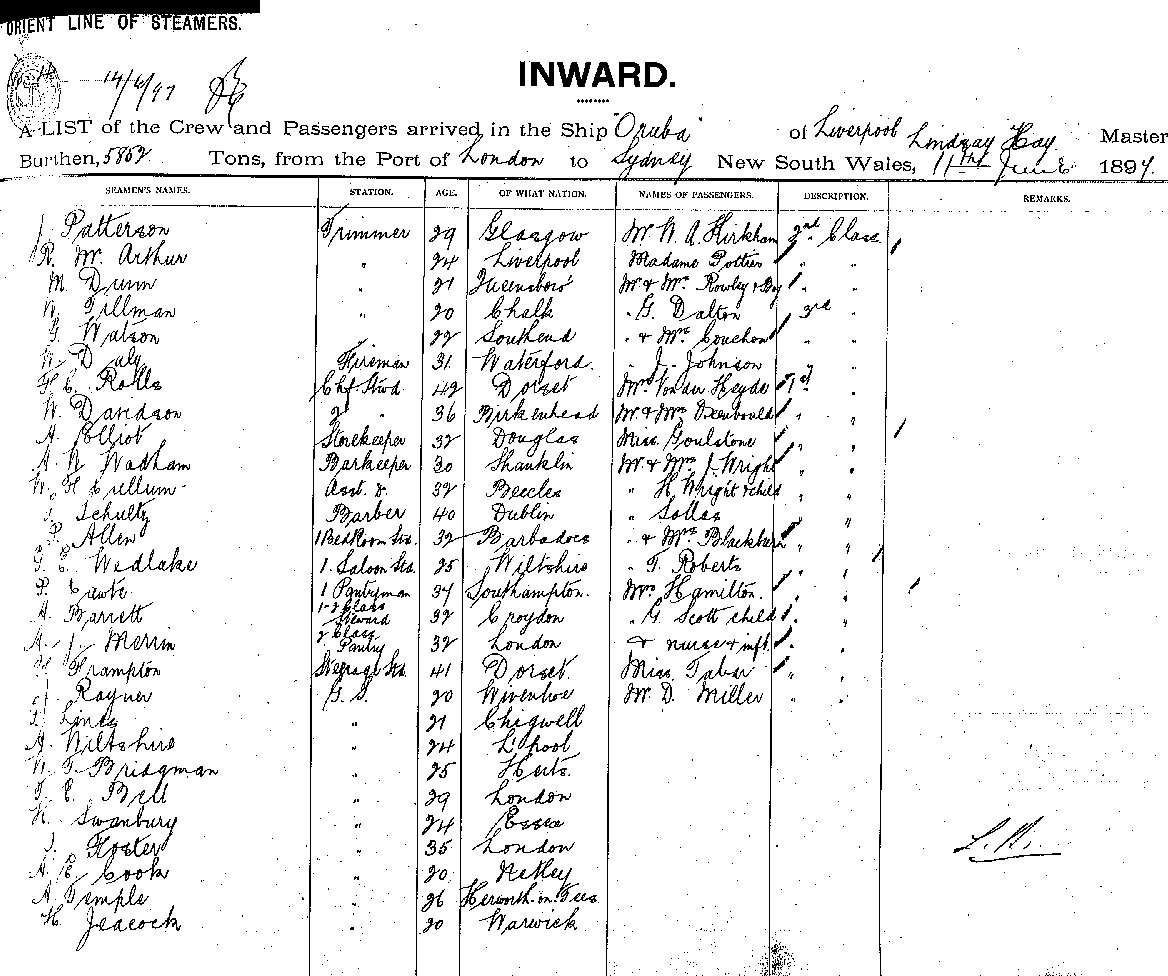 ORIENT LINE OF STEAMERS.
14/6/97
INWARD.
A LIST of the Crew and Passengers arrived in the Ship "Oruba" of Liverpool Lindsay Hay Master
Burthen, 5852 Tons, from the Port of London to Sydney New South Wales, 11th June 1897.
SEAMEN'S NAMES. STATION. AGE. OF WHAT NATION. NAMES OF PASSENGERS. DESCRIPTION. REMARKS.
J. Patterson Trimmer 29 Glasgow Mr W. A. Kirkham 2nd Class
R. Mc Arthur " 24 Liverpool Madame Pottier " "
M. Dunn " 21 Queensboro' Mr & Mrs Rowley & Boy " "
W. Tillman " 20 Chalk " G. Dalton 3rd "
G. Watson " 22 Southend " & Mrs Couchon " "
W. Daly Fireman 31 Waterford. " J. Johnson " "
H. E. Rolls Chf. Stwd 42 Dorset Mrs Von der Heyde 1st
W. Davidson 2 " 36 Birkenhead Mr & Mrs " "
A. Elliot Storekeeper 32 Douglas Miss Goulstone " "
A. W. Wadham Barkeeper 30 Shanklin Mr & Mrs J. Wright " "
W. H. Cullum Asst. d. 32 Beccles " H. Wright & child " "
J. Schultz Barber 40 Dublin " Sollas " "
P. Allen 1 Bed Room Std. 32 Barbadoes " & Mrs Blackburn " "
G. E. Wedlake 1. Saloon Std. 25 Wiltshire " T. Roberts " "
P. Cawte 1 Pantryman 34 Southampton. Mrs Hamilton. " "
A. Barrett 1-2 Class Steward 32 Croydon " G. Scott child " "
A. J. Merrin 2 Class Pantry 32 London & nurse & inft. " "
H. Frampton Steerage Std. 41 Dorset. Miss Tabor " "
J. Rayner G. S. 20 Wivenhoe Mr. D. Miller " "
Lines " 21 Chigwell
A. Wiltshire " 24 L'pool
W. T. Bridgman " 25 Herts.
T. E. Bell " 29 London
H. Swanbury " 24 Essex
J. Foster " 35 London L.H.
A. E. Cook " 20 Netley
A. Temple " 26 Hurworth-on-Tees
H. Jeacock " 20 Warwick